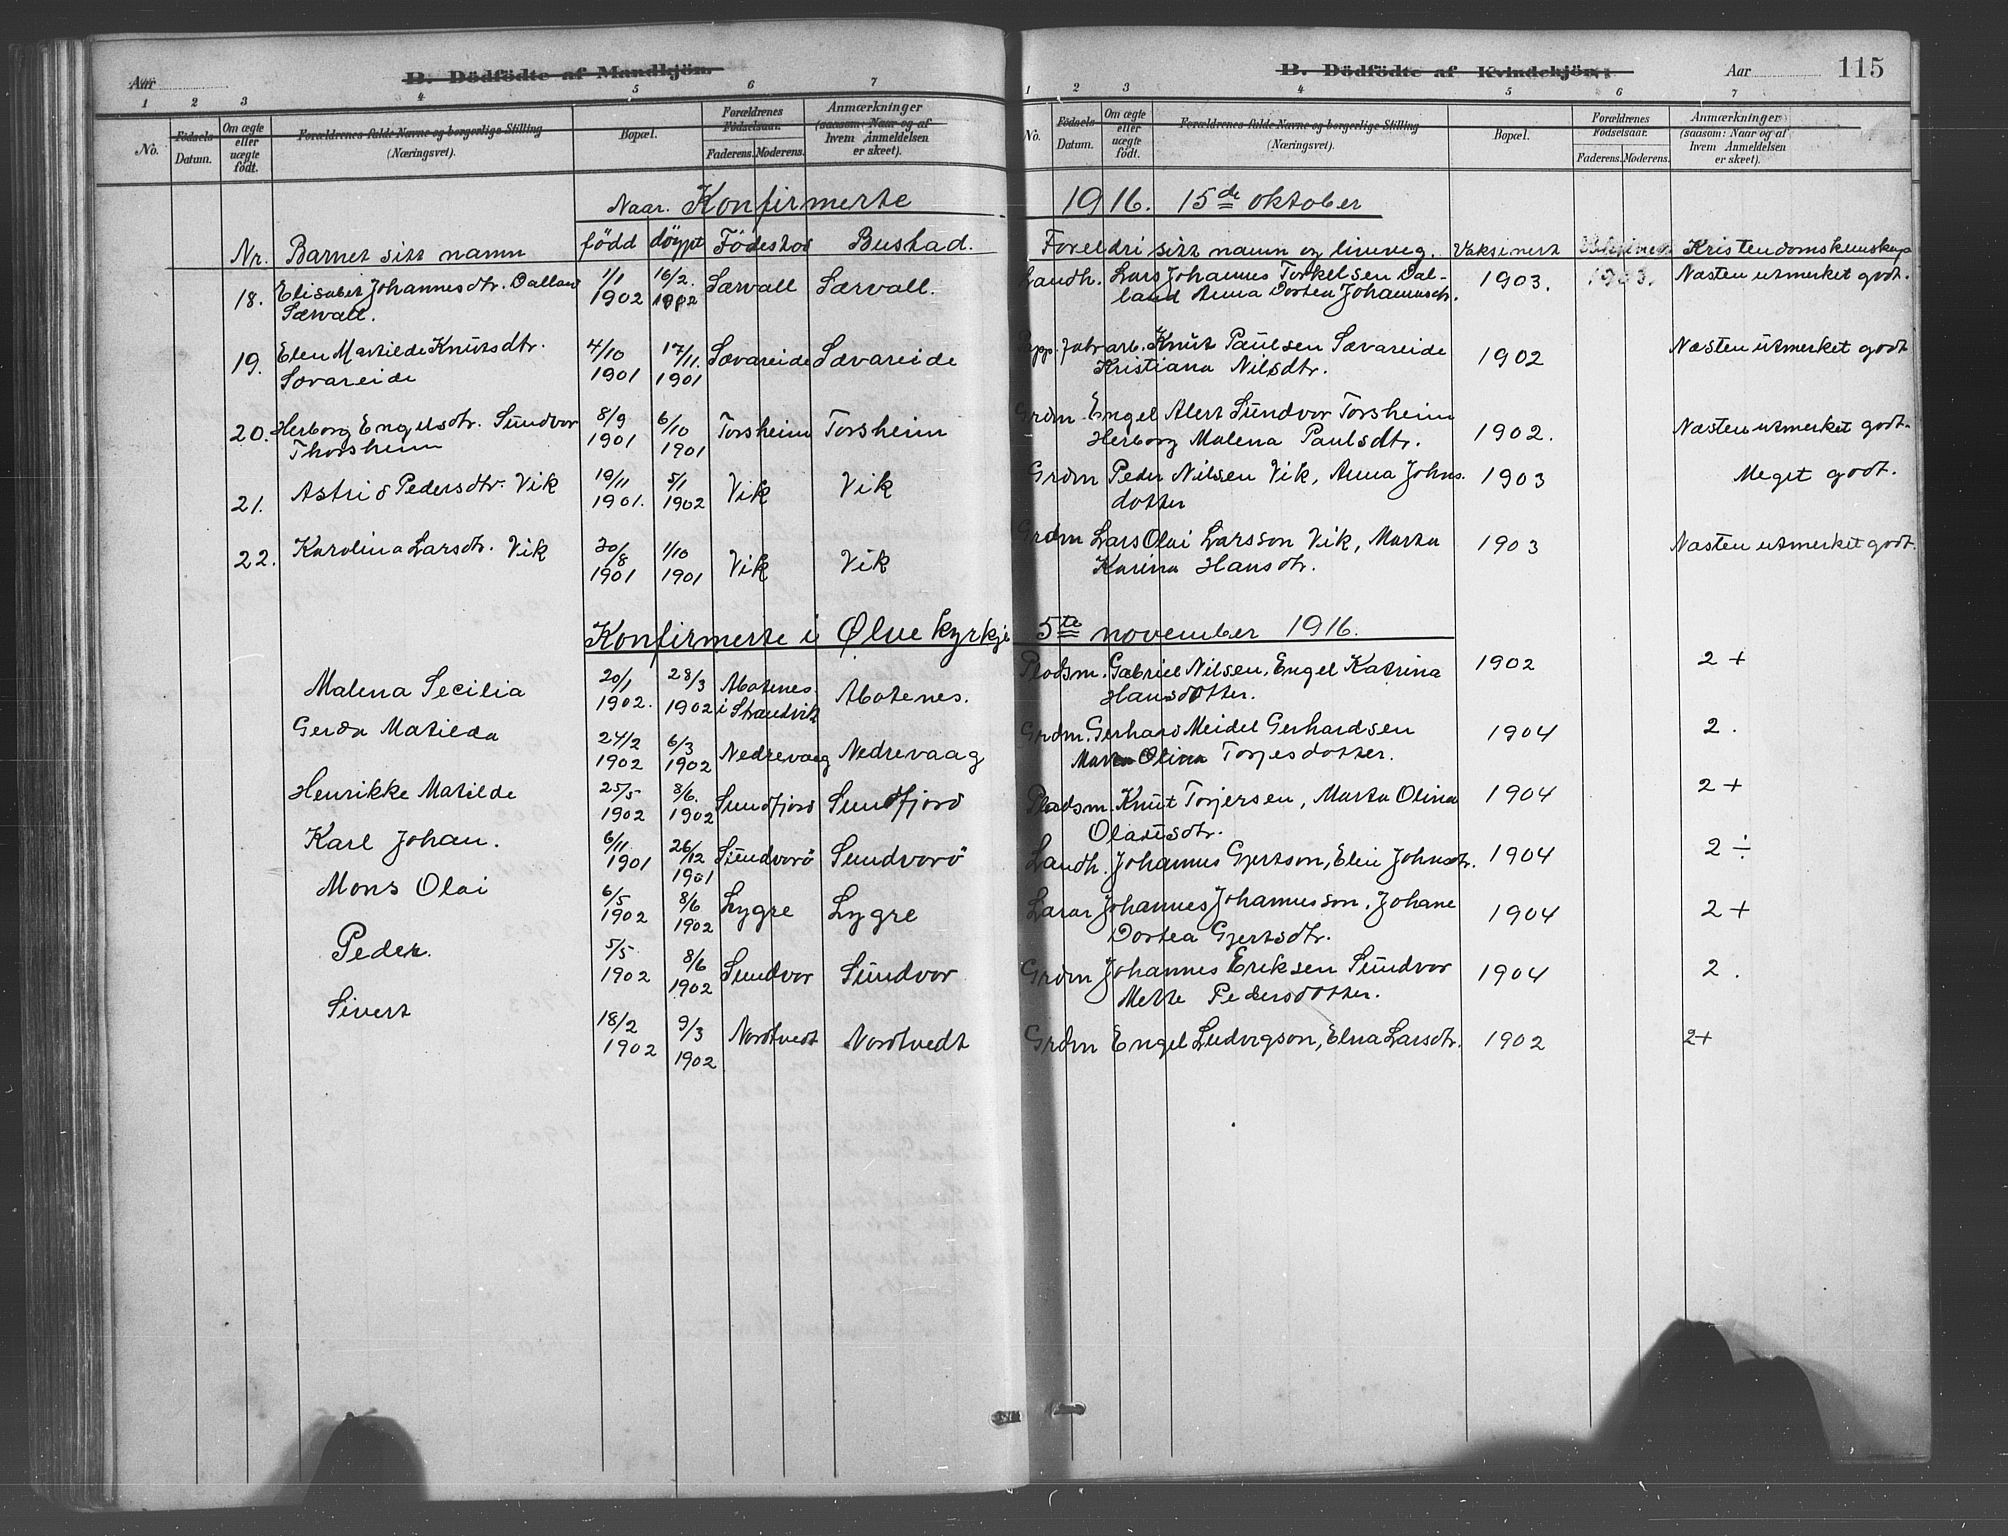 Aar
B. Dödfödte af Mandkjön.
1 2 3 4 5 6 7
No.
Fødsels Datum.
Om ægte eller uægte født.
Forældrenes fulde Navne og borgerlige Stilling (Næringsvei).
Bopæl.
Forældrenes Fødselsaar.
Faderens. Moderens.
Anmærkninger (saasom: Naar og af hvem Anmeldelsen er skeet).
B. Dödfödte af Kvindekjön.
Aar
115
1 2 3 4 5 6 7
No.
Fødsels Datum.
Om ægte eller uægte født.
Forældrenes fulde Navne og borgerlige Stilling (Næringsvei).
Bopæl.
Forældrenes Fødselsaar.
Faderens. Moderens.
Anmærkninger (saasom: Naar og af hvem Anmeldelsen er skeet).
Naar. Konfirmerte 1916. 15de oktober
Nr. Barnet sitt namn født døypt Fødestad Bustad. Foreldri sitt namn og liveveg. Vaksinert Kristendomskunskap
18. Elisabet Johannesdtr. Dalland 1/1 16/2 Sævall Sævall. Landh. Lars Johannes Torkelsen Dal- 1903. 1903. Næsten utmerket godt.
Sævall. 1902 1902 land Anna Dortea Johannesdtr.
19. Elen Martilde Knutsdtr. 4/10 17/11. Sævareide Sævareide arb. Knut Paulsen Sævareide 1902 Næsten utmerket godt
Sævareide 1901 1901 Kristiana Nilsdtr.
20. Herborg Engelsdtr. Sundvor 8/9 6/10 Torsheim Torsheim Grdm Engel Alert Sundvor Torsheim 1902. Næsten utmerket godt.
Thorsheim 1901 1901 Herborg Malena Paulsdtr.
21. Astrid Pedersdtr. Vik 19/11 5/1 Vik Vik Grdm Peder Nilsen Vik, Anna Johns 1903 Meget godt.
1901. 1902 dotter
22. Karolina Larsdtr. Vik 20/8 1/10 Vik Vik Grdm Lars Olai Larsson Vik, Marta 1903 Næsten utmerket godt.
1901 1901 Karina Hansdtr.
Konfirmerte i Ølve kyrkje 5te november 1916.
Malena Secilia 20/1 28/3 Abotenes. Abotenes. Pladsm. Gabriel Nilsen, Engel Katrina 1902 2 +
1902. 1902 i Strandvik Hansdotter.
Gerda Matilda 24/2 6/3 Nedrevaag Nedrevaag Grdm. Gerhard Meidel Gerhardsen 1904 2.
1902 1902 Marta Olina Torjesdotter.
Henrikke Matilde 25/5 8/6. Sundfjord Sundfjord Pladsm. Knut Torjersen, Marta Olina 1904 2 +
1902 1902 Olausdtr.
Karl Johan. 6/11. 26/12 Sundvorö Sundvorö Landh. Johannes Gjertson, Elin Johnsdtr. 1904 2 ÷
1901 1901
Mons Olai 6/5 8/6 Lygre Lygre Lærar Johannes Johannesson, Johane 1904 2 +
1902 1902 Dortea Gjertsdtr.
Peder. 5/5 8/6 Sundvor Sundvor Grdm Johannes Eriksen Sundvor 1904 2.
1902 1902 Mette Pedersdotter.
Sivert 18/2 9/3 Nordtvedt Nordtvedt Grdm Engel Ludvigson, Elna Larsdtr. 1902 2+
1902 1902